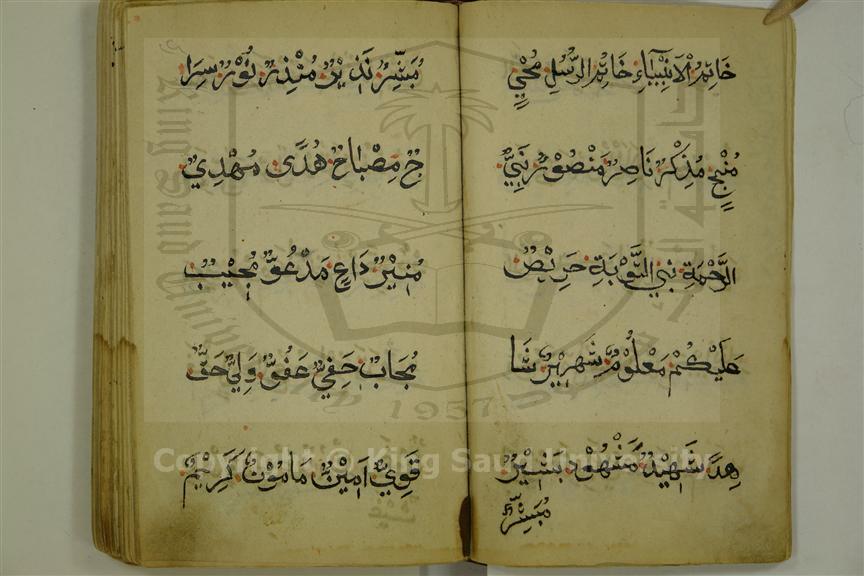 خَاتِمُ الْاَنْبِيَاءِ خَاتِمُ الرُّسُلِ مُحْيٍ
مُنْجٍ مُذَكِّرٌ نَاصِرٌ مَنْصُوْرٌ نَبِيُّ
الرَّحْمَةِ نَبِيُّ التَّوْبَةِ حَرِيْصٌ
عَلَيْكُمْ مَعْلُوْمٌ شَهِيْرٌ شَا
هِدٌ شَهِيْدٌ مَشْهُودٌ بَشِيْرٌ
مُبَشِّرٌ
مُبَشِّرٌ نَذِيْرٌ مُنْذِرٌ نُوْرٌ سِرَا
جٌ مِصْبَاحٌ هُدًى مَهْدِيٌّ
مُنِيْرٌ دَاعٍ مَدْعُوٌّ مُجِيْبٌ
مُجَابٌ حَفِيٌّ عَفُوٌّ وَلِيٌّ حَقٌّ
قَوِيٌّ اَمِيْنٌ مَامُوْنٌ كَرِيْمٌ
جامعة الملك سعود
King Saud University
1957
Copyright © King Saud University